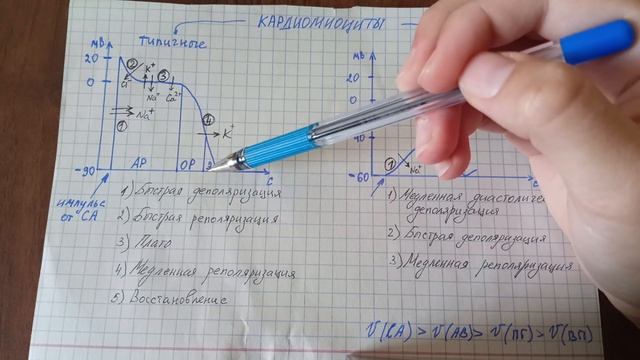 КАРДИОМИОЦИТЫ
ТИПИЧНЫЕ
мВ
20
0
-90
② K⁺ ③
Cl⁻ Na⁺ Ca²⁺
Na⁺
①
④
K⁺
АР ОР
с
ИМПУЛЬС
ОТ СА
1) Быстрая деполяризация
2) Быстрая реполяризация
3) Плато
4) Медленная реполяризация
5) Восстановление
мВ
20
0
40
-60
①
Na⁺
с
1) Медленная диастоличе
деполяризация
2) Быстрая деполяризация
3) Медленная реполяризация
V(СА) > V(АВ) > V(ПГ) > V(ВП)